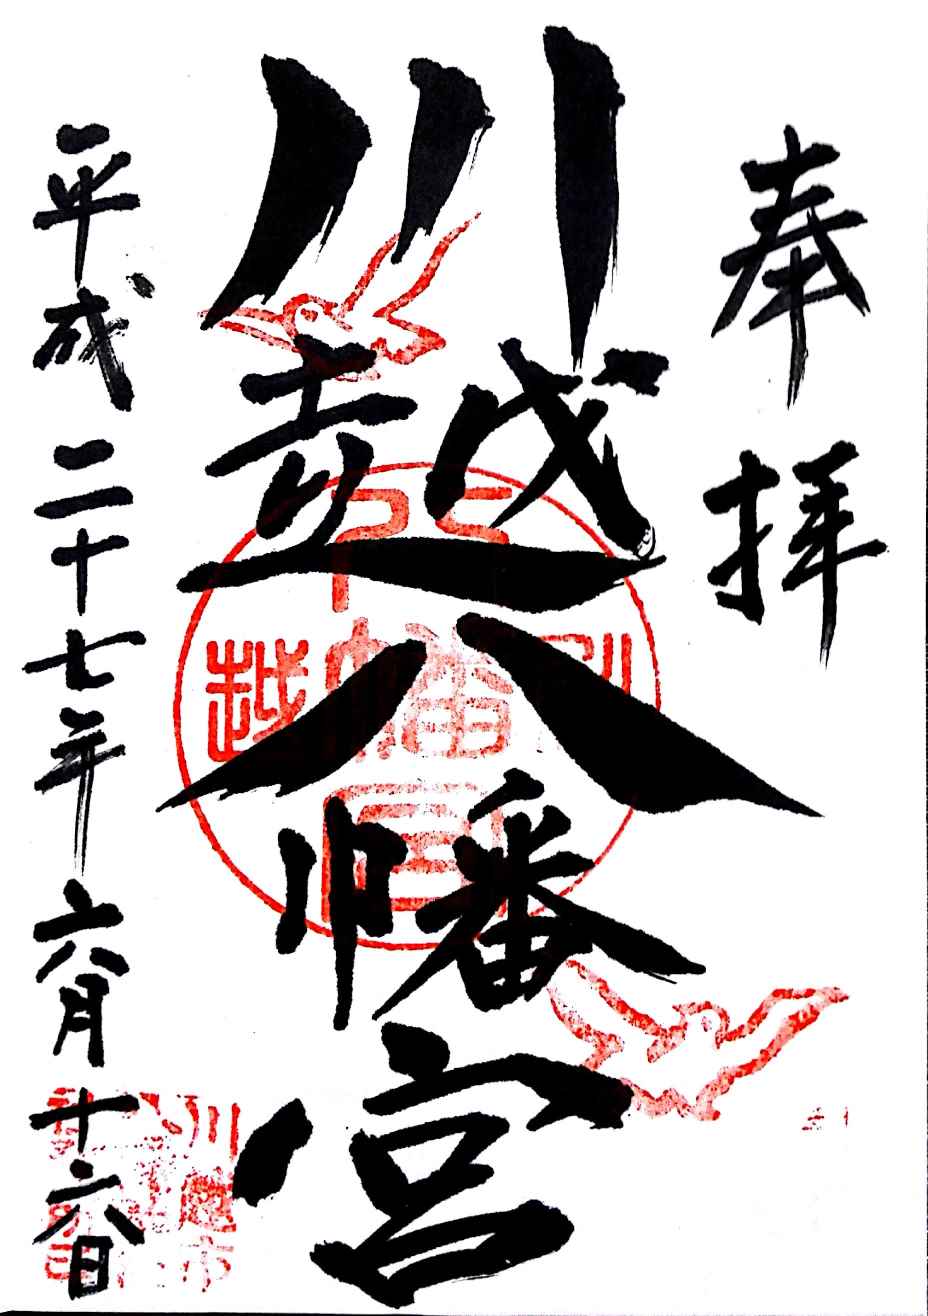 奉拝
川越八幡宮
平成二十七年六月十六日
川越 八幡宮